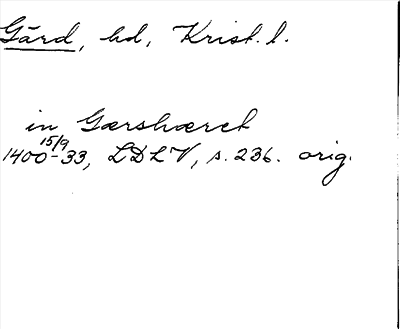 Gärd, hd, Krist. l.
in Gærshæret
15/9
1400-33, LDLV, s. 236. orig.